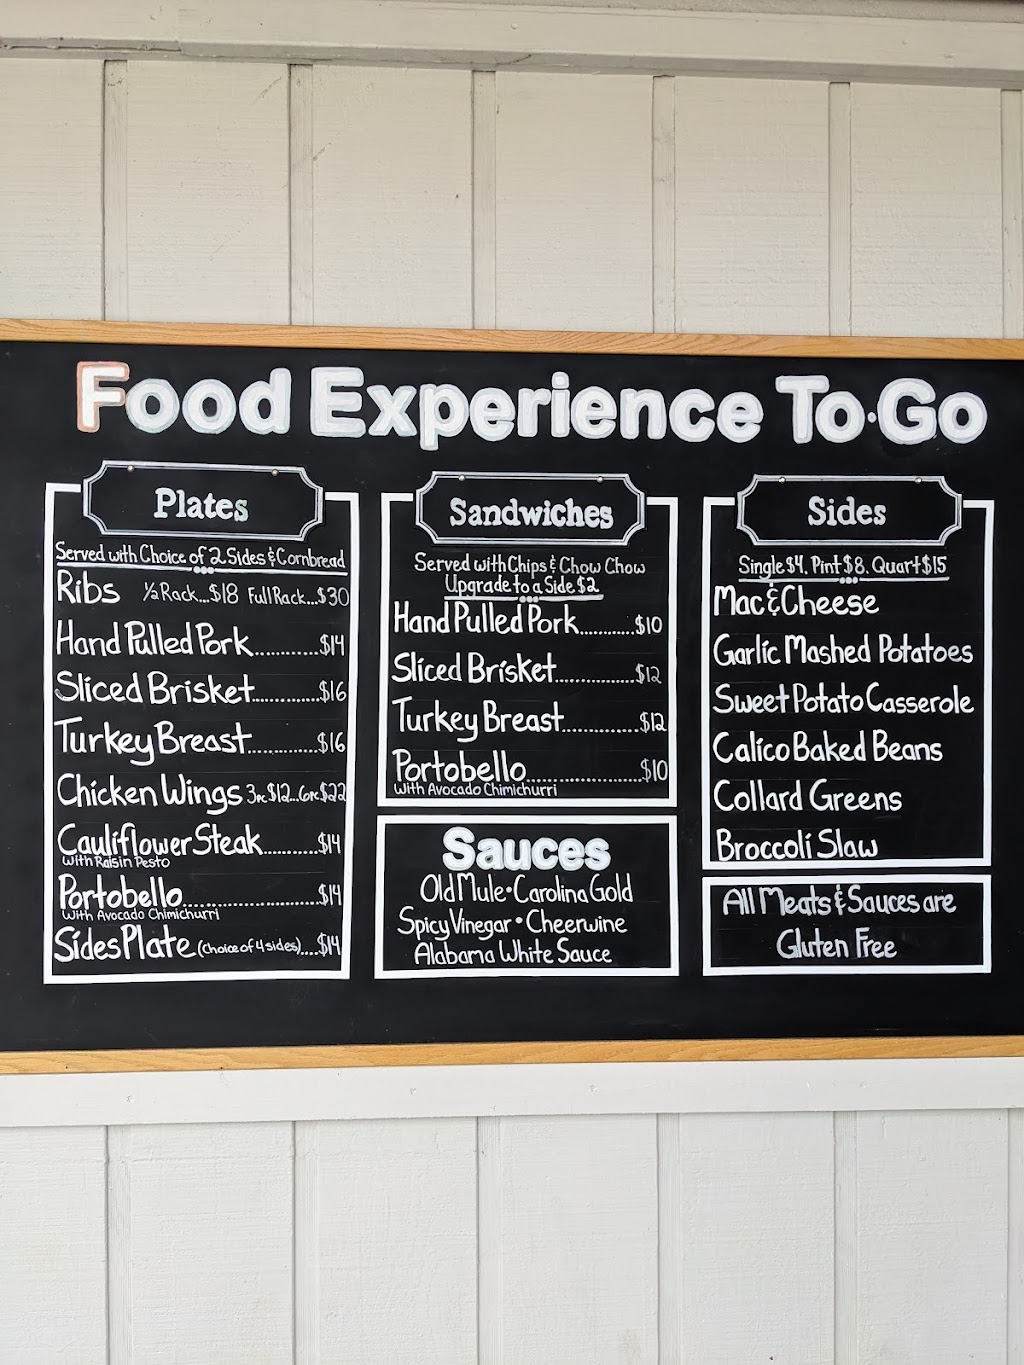 Food Experience To·Go
Plates
Served with Choice of 2 Sides & Cornbread
Ribs ½ Rack...$18 Full Rack...$30
Hand Pulled Pork............$14
Sliced Brisket............$16
Turkey Breast.............$16
Chicken Wings 3pc $12...6pc $22
Cauliflower Steak..........$14
With Raisin Pesto
Portobello.......................$14
With Avocado Chimichurri
Sides Plate (choice of 4 sides).....$14
Sandwiches
Served with Chips & Chow Chow
Upgrade to a Side $2
Hand Pulled Pork............$10
Sliced Brisket.................$12
Turkey Breast................$12
Portobello.......................$10
With Avocado Chimichurri
Sauces
Old Mule • Carolina Gold
Spicy Vinegar • Cheerwine
Alabama White Sauce
Sides
Single $4. Pint $8. Quart $15
Mac & Cheese
Garlic Mashed Potatoes
Sweet Potato Casserole
Calico Baked Beans
Collard Greens
Broccoli Slaw
All Meats & Sauces are
Gluten Free